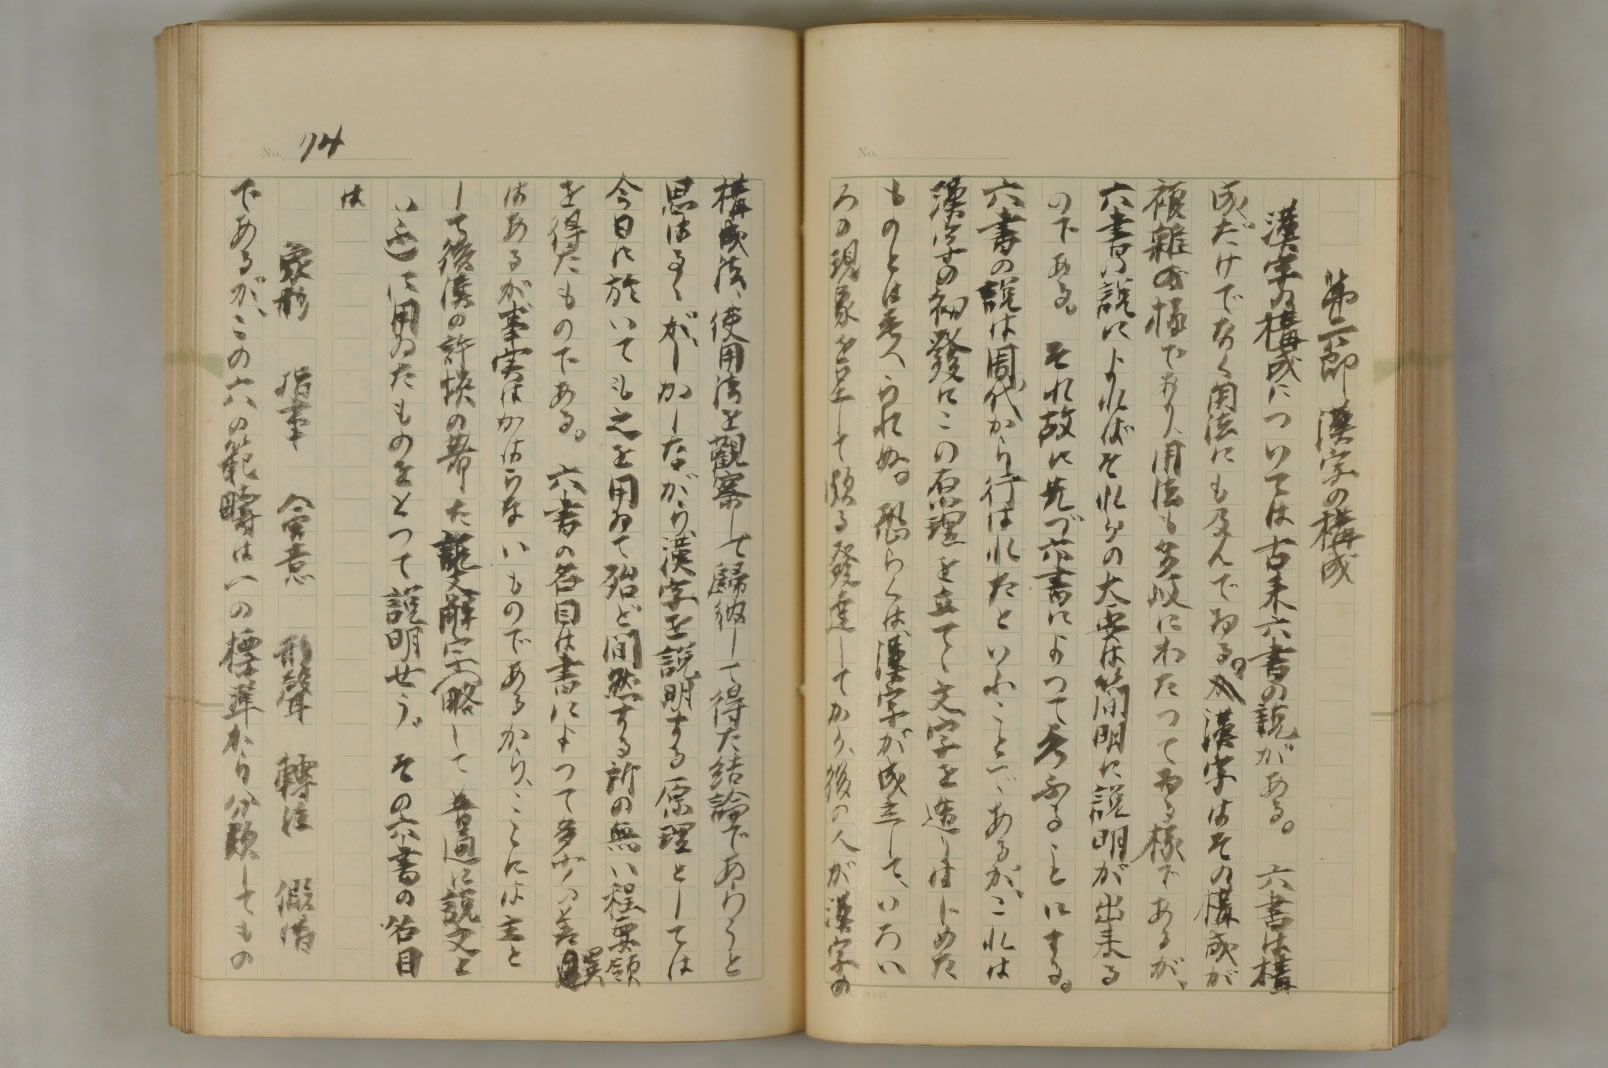 第二部 漢字の構成
漢字の構成については古来六書の説がある。六書は構
成だけでなく用法にも及んでゐる。漢字はその構成が
複雜の極であり、用法も多岐にわたつてゐる樣であるが、
六書の説によればそれらの大要は簡明に説明が出来る
のである。それ故に先づ六書によつて考ふることにする。
六書の説は周代から行はれたといふことであるが、これは
漢字の初發にこの原理を立てゝ文字を造りはじめた
ものとは考へられぬ。恐らくは漢字が成立して、いろい
ろな現象を呈して頗る發達してから、後の人が漢字の
No.
No. 74
構成法、使用法を觀察して歸納して得た結論であらうと
思はるゝが、しかしながら漢字を説明する原理としては
今日に於いても之を用ゐて殆ど間然する所の無い程要領
を得たものである。六書の名目は書によつて多少の差異
はあるが事実はかはらないものであるから、こゝには主と
して後漢の許愼の著した説文解字(略して普通に説文と
いふ)に用ゐたものをとつて説明せう。その六書の名目
は
象形 指事 会意 形聲 轉注 假借
であるが、この六の範疇は一の標準から分類してもの